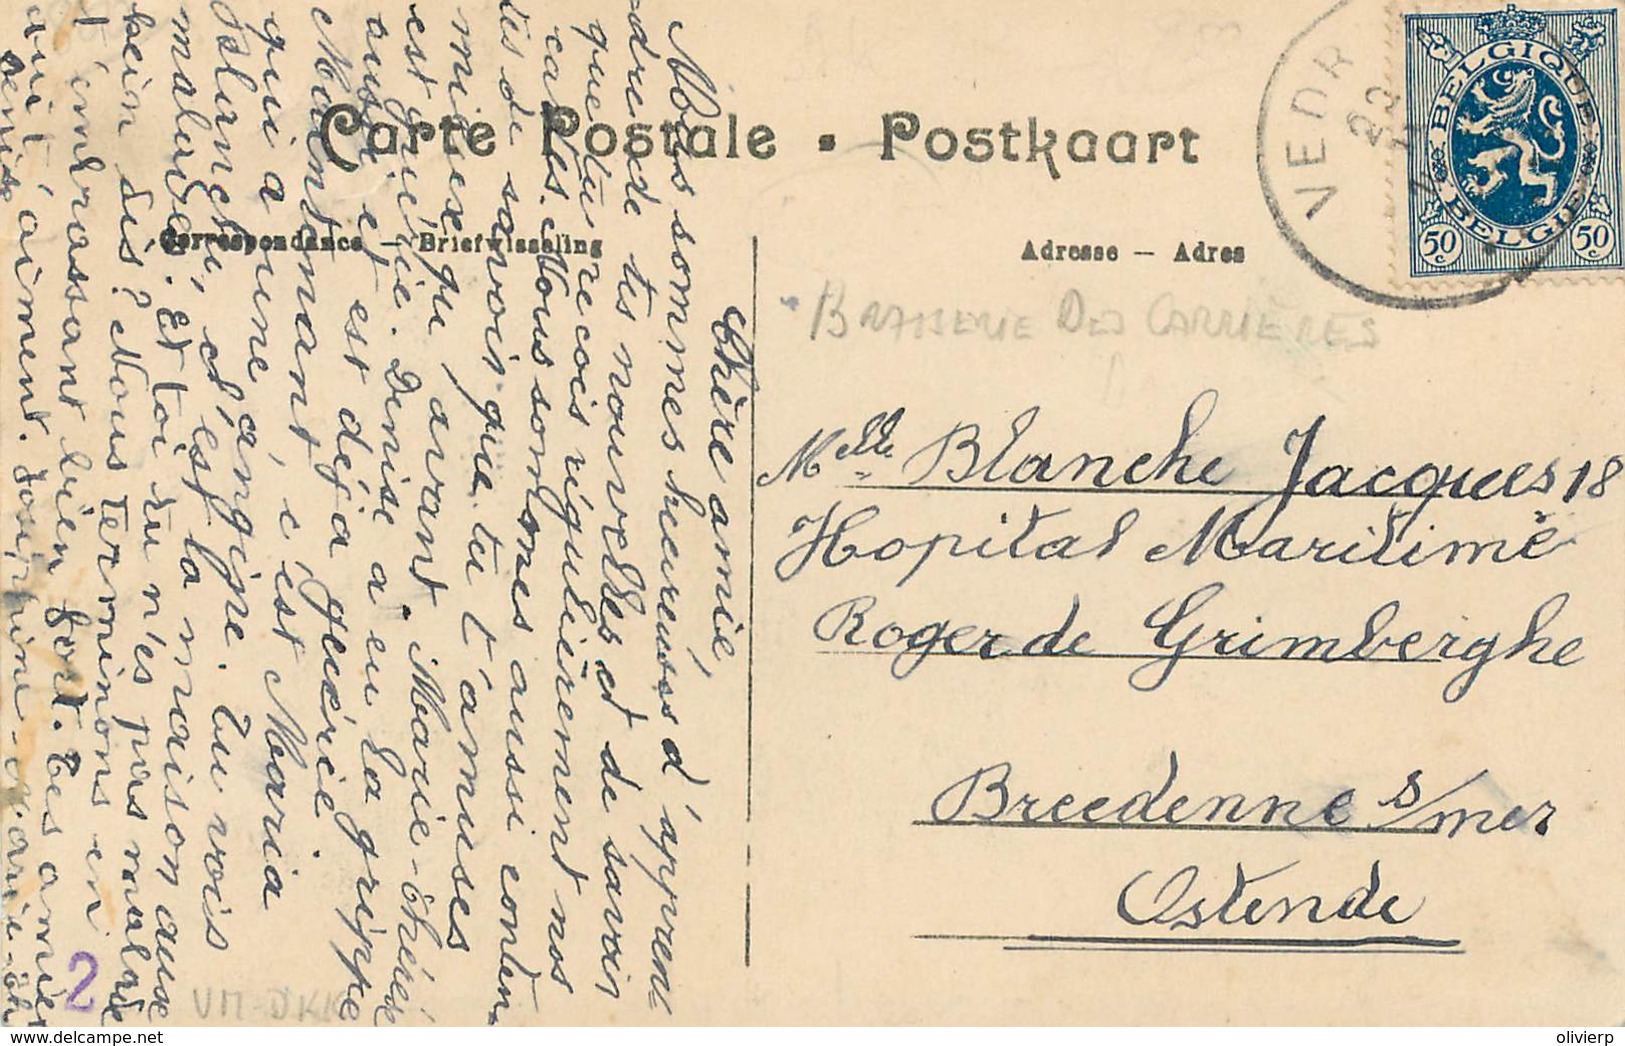 Carte Postale . Postkaart
Correspondance — Briefwisseling
Adresse — Adres
BELGIQUE
BELGIE
50 c
50 c
VEDR
BRASSERIE DES CARRIÈRES
Melle Blanche Jacques 18
Hopital Maritime
Roger de Grimberghe
Breedenne s/mer
Ostende
Chère amie,
Nous sommes heureuses d'appren-
dre de tes nouvelles et de savoir
que tu reçois régulièrement nos
cartes. Nous sommes aussi conten-
tes de savoir que tu t'amuses
mieux qu'avant. Marie-Thérèse
est guérie. Denise a eu la grippe
aussi et est déjà guérie.
Maintenant, c'est Maria
qui a une angine. Tu vois
Blanche, c'est la maison aux
malades. Et toi tu n'es pas malade
hein dis? Nous terminons en
t'embrassant bien fort. Tes amies
qui t'aiment. Joséphine - Marie-Th
Denise
2
VM-DKK
olivierp